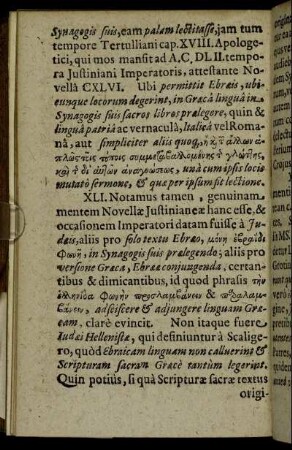 Synagogis suis, eam palam lectitasse, jam tum
tempore Tertulliani cap. XVIII. Apologe-
tici, qui mos mansit ad A, C, DLII. tempo-
ra Justiniani Imperatoris, attestante No-
vellâ CXLVI. Ubi permittit Ebræis, ubi-
cunque locorum degerint, in Græcâ linguâ in
Synagogis suis sacros libros prælegere, quin &
linguâ patriâ ac vernaculâ, Italicâ vel Roma-
nâ, aut simpliciter aliis quoq,
unà cum ipsis locis
mutato sermone, & quæ per ipsum fit lectione.
XLI. Notamus tamen, genuinam
mentem Novellæ Justinianeæ hanc esse, &
occasionem Imperatori datam fuisse à Ju-
dæis, aliis pro solo textu Ebræo, μόνῃ ἑβραΐδι
φωνῇ, in Synagogis suis prælegendo; aliis pro
versione Græca, Ebrææ conjungenda, certan-
tibus & dimicantibus, id quod phrasis τὴν
ἑλληνίδα φωνὴν προσλαμβάνειν & παραλαμ-
βάνειν, adsciscere & adjungere linguam Græ-
cam, clarè evincit. Non itaque fuere
Judæi Hellenistæ, qui definiuntur à Scalige-
ro, quòd Ebraicam linguam non calluerint &
Scripturam sacram Græcè tantùm legerint.
Quin potiùs, si quà Scripturæ sacræ textus
origi-